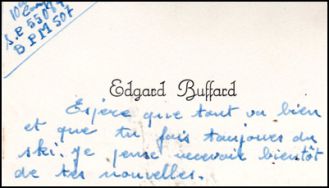 10e Comp
S.P 55089
B P M 507
Edgard Buffard
Espère que tout va bien
et que tu fais toujours du
ski. Je pense recevoir bientôt
de tes nouvelles.